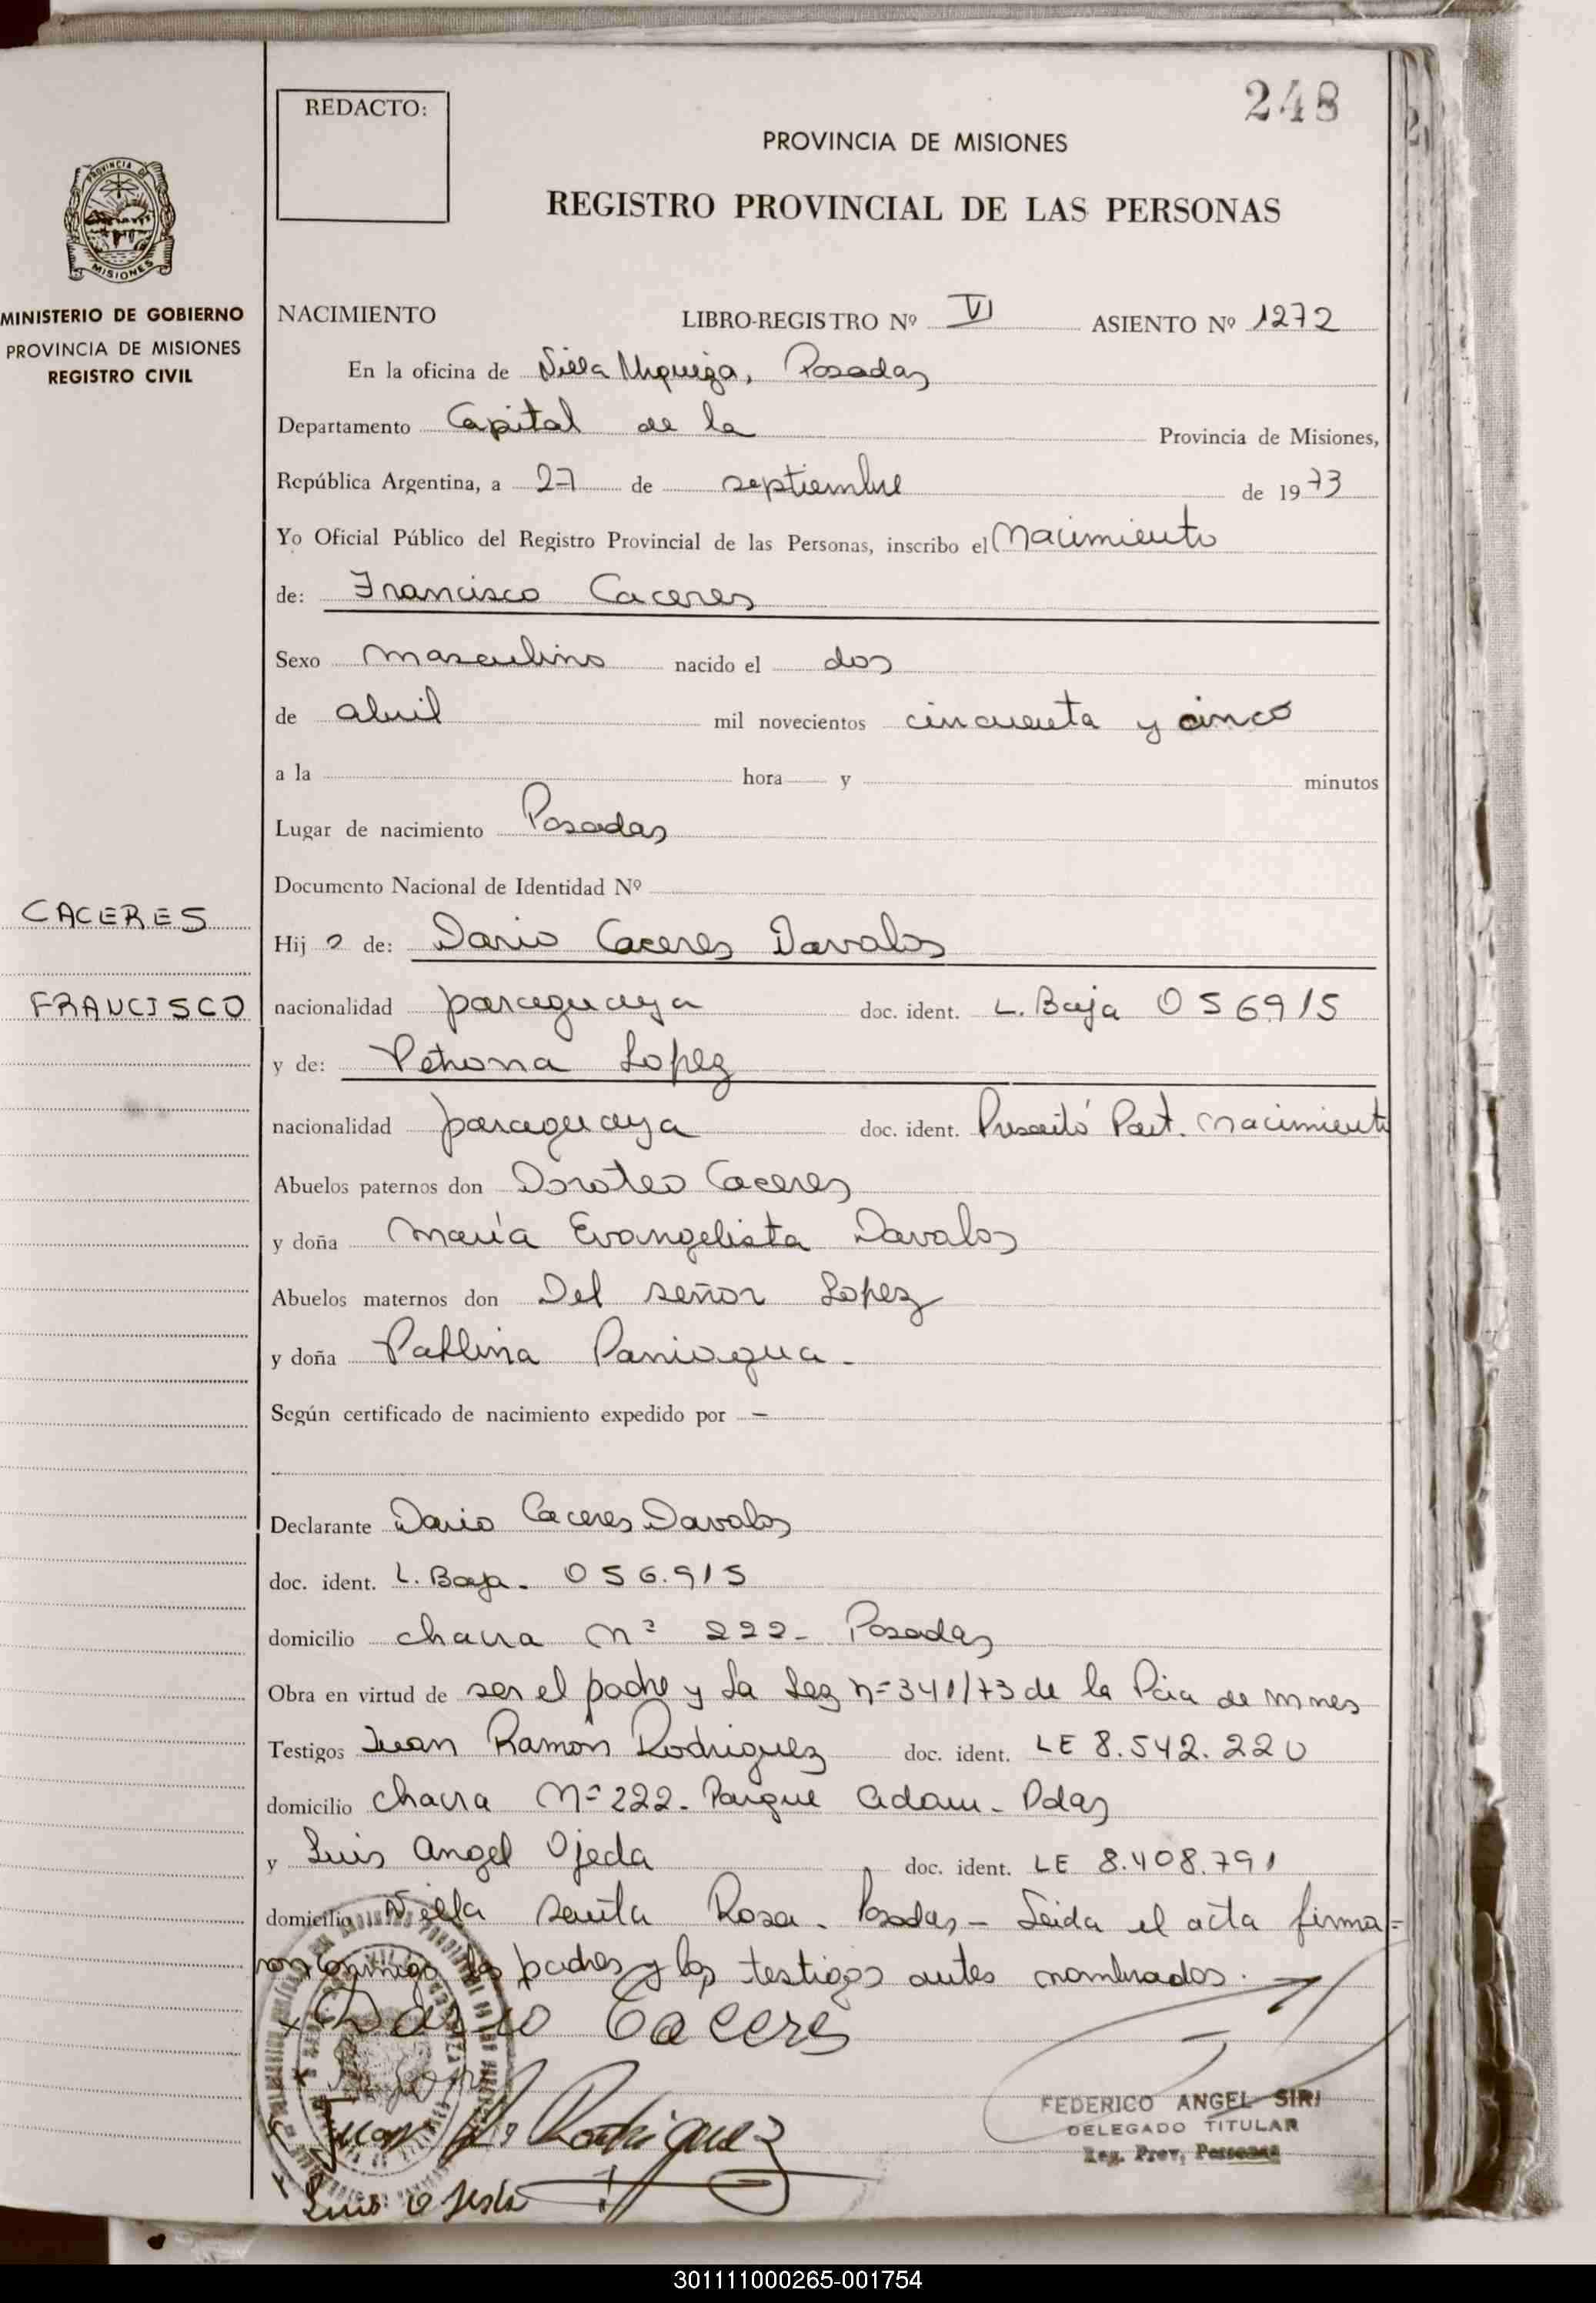 248
REDACTO:
PROVINCIA DE MISIONES
REGISTRO PROVINCIAL DE LAS PERSONAS
PROVINCIA DE
MISIONES
MINISTERIO DE GOBIERNO
PROVINCIA DE MISIONES
REGISTRO CIVIL
NACIMIENTO LIBRO-REGISTRO Nº VI ASIENTO Nº 1272
En la oficina de Villa Urquiza, Posadas
Departamento Capital de la Provincia de Misiones,
República Argentina, a 27 de septiembre de 1973
Yo Oficial Público del Registro Provincial de las Personas, inscribo el Nacimiento
de: Francisco Caceres
Sexo masculino nacido el dos
de abril mil novecientos cincuenta y cinco
a la hora y minutos
Lugar de nacimiento Posadas
Documento Nacional de Identidad Nº
CACERES
Hijo de: Dario Caceres Davalos
FRANCISCO
nacionalidad paraguaya doc. ident. L. Baja 056915
y de: Petrona Lopez
nacionalidad paraguaya doc. ident. Presentó Part. Nacimiento
Abuelos paternos don Doroteo Caceres
y doña María Evangelista Davalos
Abuelos maternos don Del señor Lopez
y doña Pablina Paniagua -
Según certificado de nacimiento expedido por -
Declarante Dario Caceres Davalos
doc. ident. L. Baja. 056.915
domicilio chacra Nº 222- Posadas
Obra en virtud de ser el padre y La Ley nº 341/73 de la Pcia de Mnes
Testigos Juan Ramón Rodriguez doc. ident. LE 8.542.220
domicilio chacra Nº 222- Parque Adam- Pdas
y Luis Angel Ojeda doc. ident. LE 8.408.791
domicilio Villa Santa Rosa. Posadas - Leida el acta firma=
ron conmigo los padres y los testigos antes nombrados.
x Dario Caceres
Juan R. Rodriguez
FEDERICO ANGEL SIRI
DELEGADO TITULAR
Reg. Prov, Personas
Luis
301111000265-001754